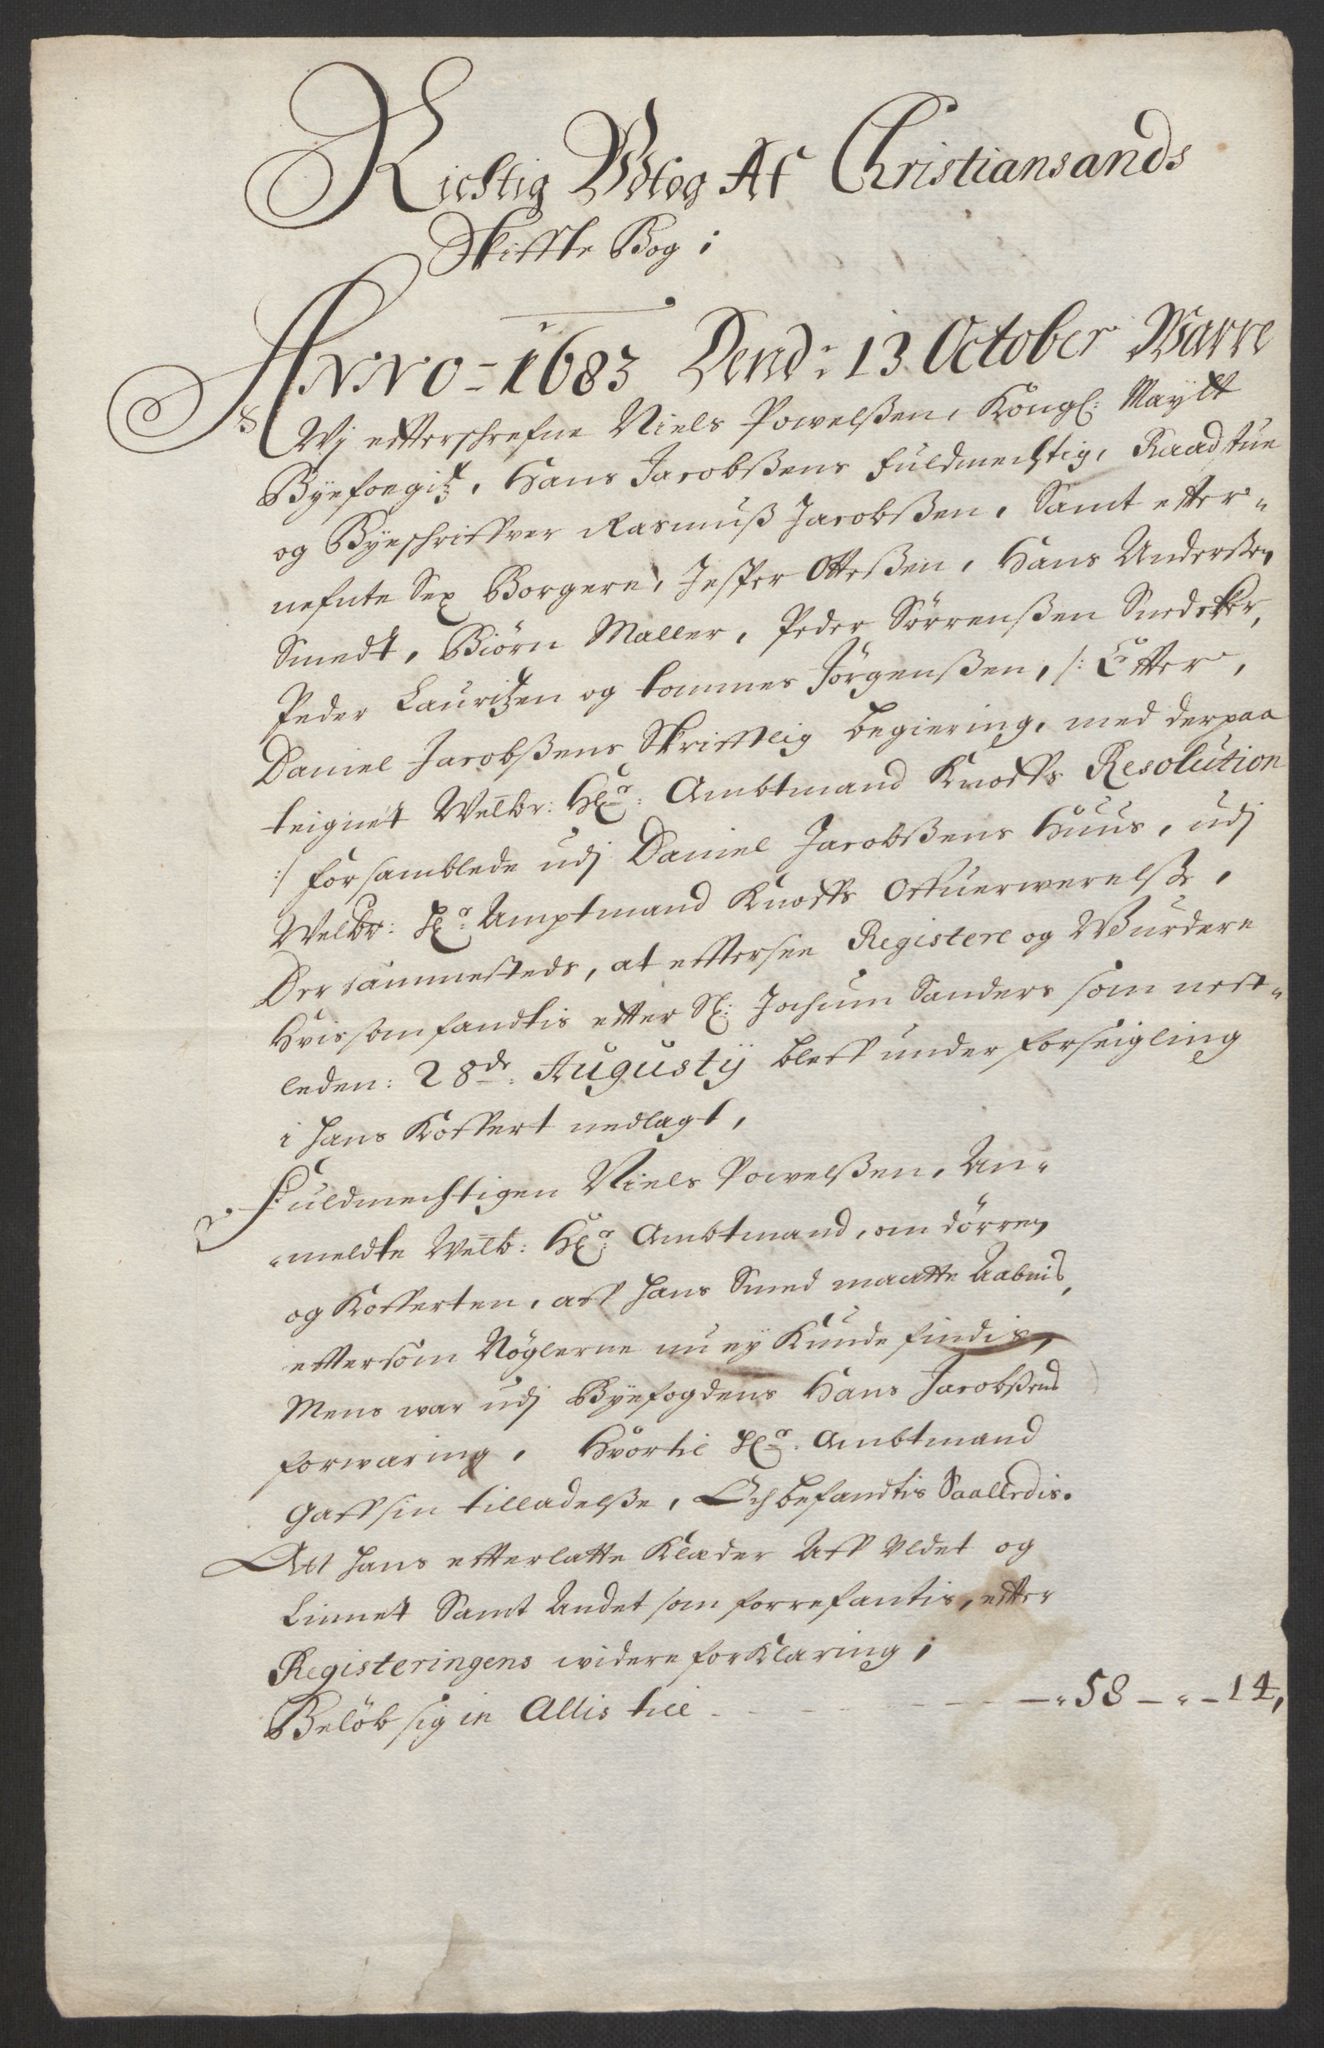 Richtig Vdtog Af Christiansands
Skiffte Bog ;
Anno = 1683 Dend: 13 October Warre
Wj efterschrefne Niels Powelßen, Kongl: Maytt
Byefoegitz, Hans Jacobßens Fuldmechtig, Raadstue
og Byeschriffver Rasmuß Jacobßen, Samt efter-
nefnte Sex Borgere, Jesper Otteßen, Hans Anderßen
Smedt, Biørn Maller, Peder Sørrenßen Snedcker,
Peder Lauritzen og tommes Jørgenßen, /: Efter,
Daniel Jacobßens Skrifftlig begiering, med derpaa
teignet Welbr: Hr: Ambtmand Knoffs Resolution
:/ forsamblede udj Daniel Jacobßens Huus, udj
Welbr: Hr: Amptmand Knoffs Offuerwerelße,
Der sammesteds, at efftersee Registere og Wurdere
Hvis som fandtis efter Sl: Jochum Sanders som nest-
leden: 28de: Augustij bleff under forseigling
i hans Koffert nedlagt,
Fuldmechtigen Niels Powelßen, An-
-meldte Welb: Hr: Ambtmand, om dørren
og Kofferten, aff Hans Smed maatte Aabnis,
eftersom Nøglerne nu ey Kunde findis,
Mens war udj Byefogdens Hans Jacobßens
forwaring, Hvortil Hr: Ambtmand
Gaff sin tilladelße, Och befandtis Saalledis.
Att hans efterlatte Klæder Aff Uldet og
Linnet Samt Andet som forrefantis, efter
Registeringens widere forklaring,
Beløb sig in Allis till - - - - 58 - " - 14,